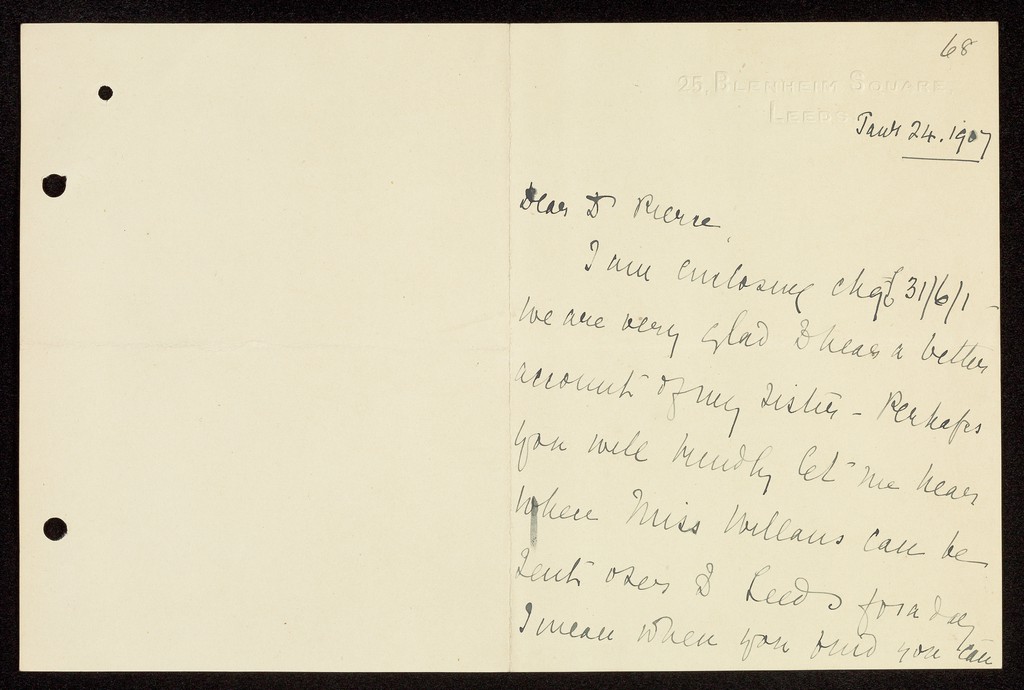 68
25, BLENHEIM SQUARE,
LEEDS
Jany 24. 1907
Dear Dr Pierce,
I am enclosing chq £31/6/1 -
We are very glad to hear a better
account of my sister - Perhaps
you will kindly let me hear
when Miss Willans can be
sent over to Leeds for a day
I mean when you find you can